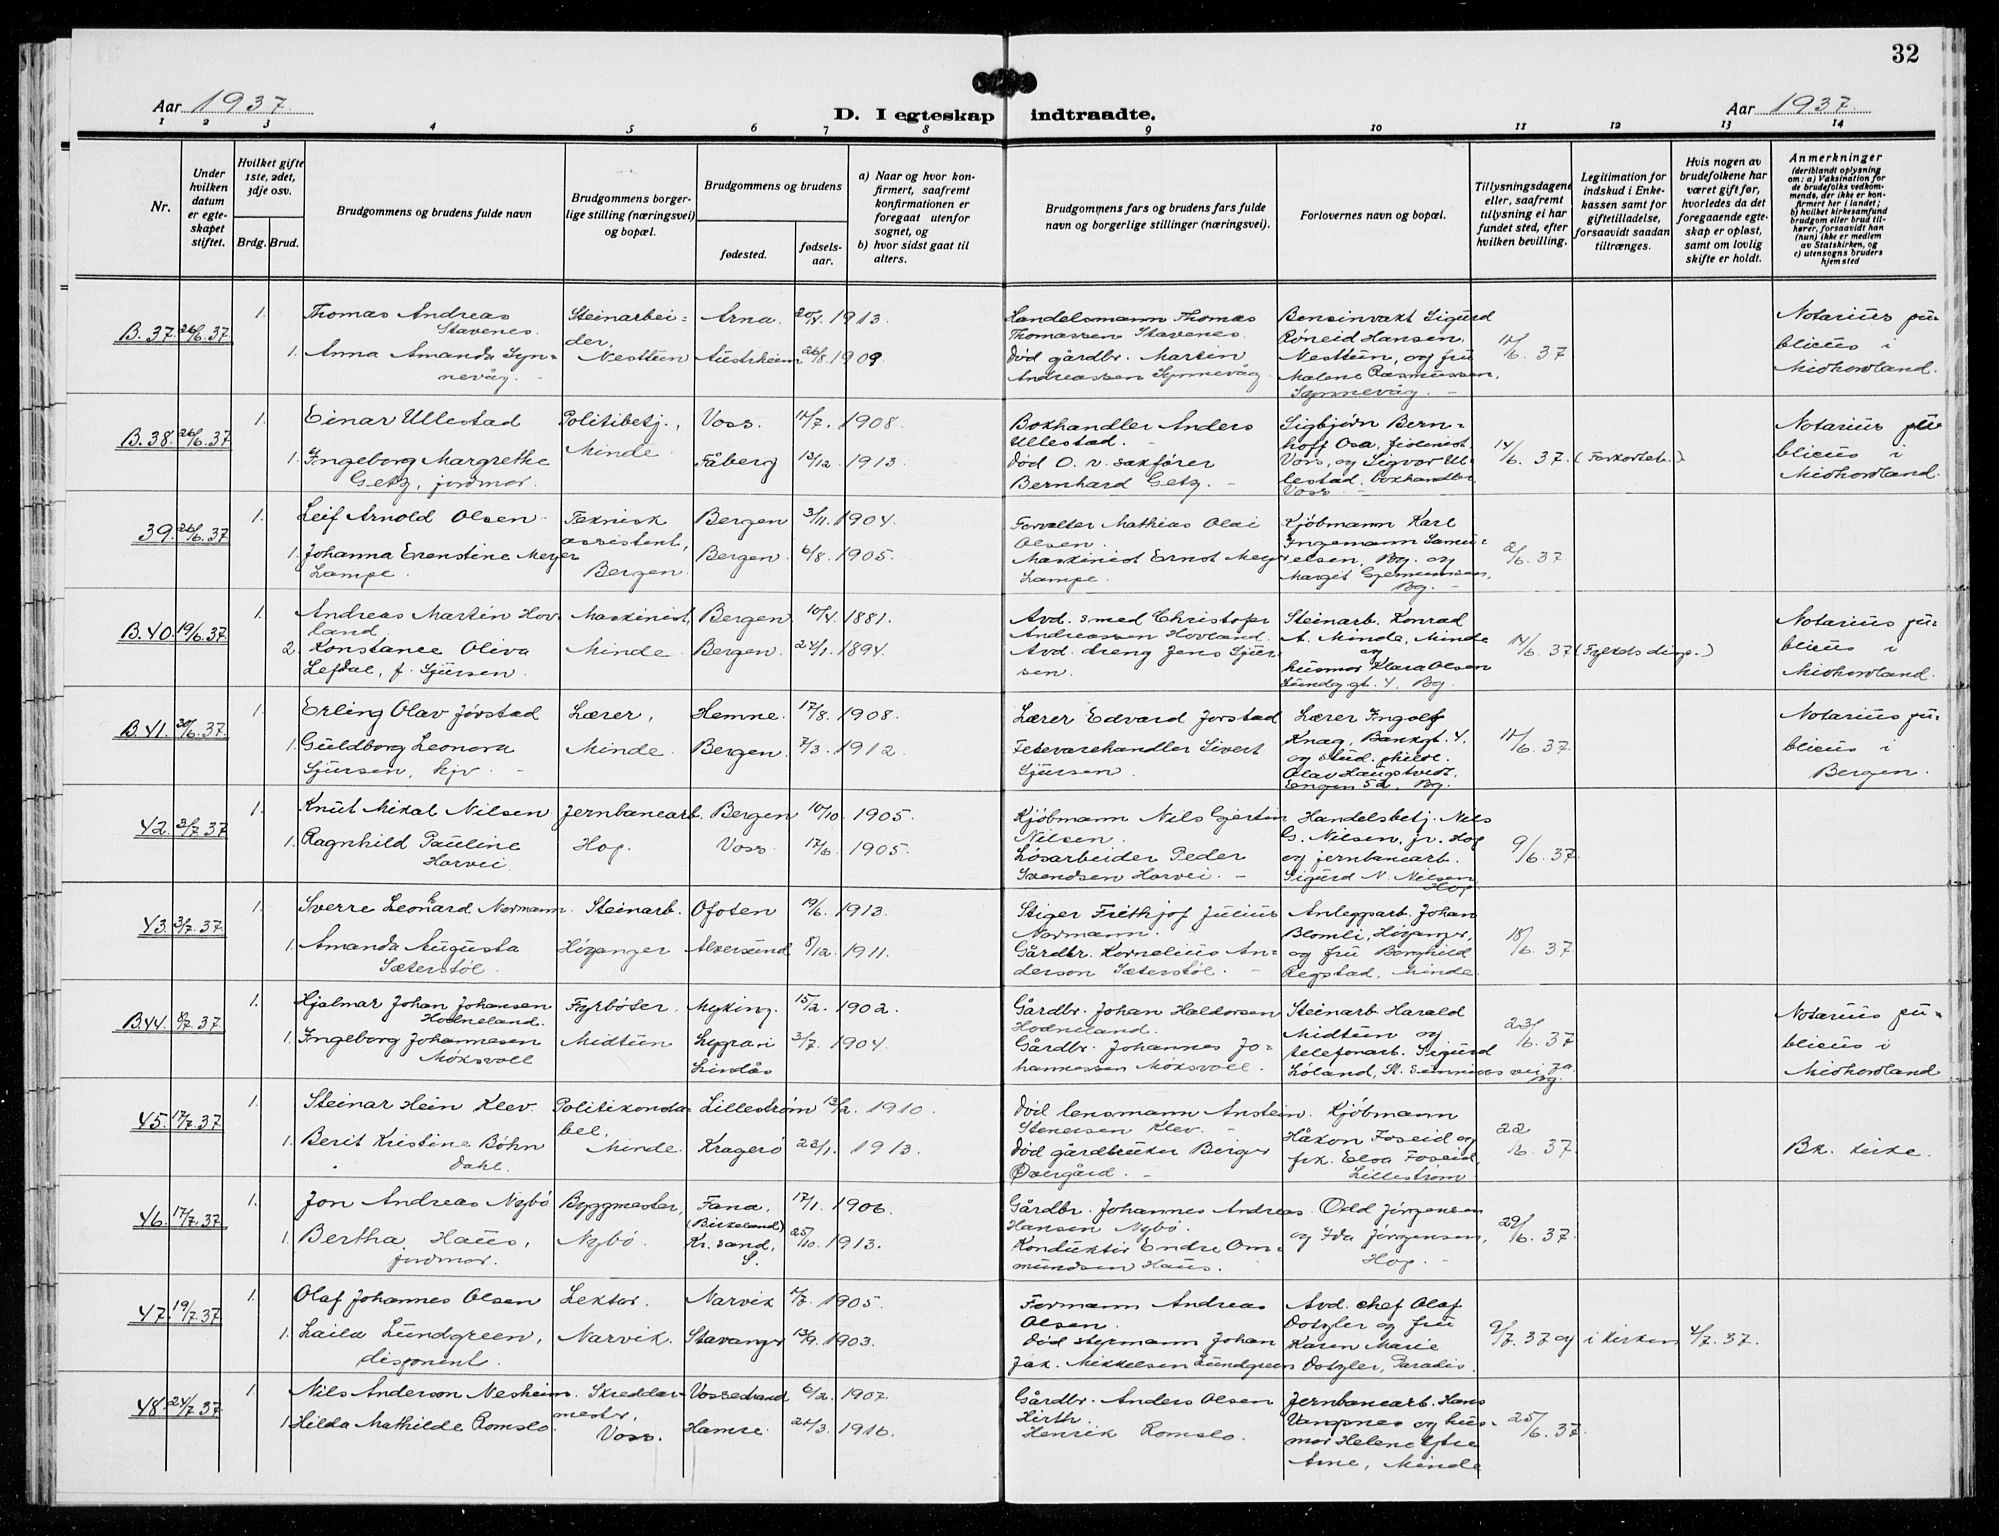 32
Aar 1937.
D. I egteskap indtraadte.
Aar 1937.
1 2 3 4 5 6 7 8 9 10 11 12 13 14
Nr.
Under hvilken datum er egteskapet stiftet.
Hvilket gifte 1ste, 2det, 3dje osv.
Brdg. Brud.
Brudgommens og brudens fulde navn
Brudgommens borgerlige stilling (næringsvei) og bopæl.
Brudgommens og brudens
fødested.
fødselsaar.
a) Naar og hvor konfirmert, saafremt konfirmationen er foregaat utenfor sognet, og
b) hvor sidst gaat til alters.
Brudgommens fars og brudens fars fulde navn og borgerlige stillinger (næringsvei).
Forlovernes navn og bopæl.
Tillysningsdagene eller, saafremt tillysning ei har fundet sted, efter hvilken bevilling.
Legitimation for indskud i Enkekassen samt for giftetilladelse, forsaavidt saadan tiltrænges.
Hvis nogen av brudefolkene har været gift før, hvorledes da det foregaaende egteskap er opløst, samt om lovlig skifte er holdt.
Anmerkninger (deriblandt oplysning om: a) Vaksination for de brudefolks vedkommende, der ikke er konfirmert her i landet; b) hvilket kirkesamfund brudgom eller brud tilhører, forsaavidt han (hun) ikke er medlem av Statskirken, og c) utensogns bruders hjemsted
B.37. 26/6.37
1. Thomas Andreas Stavenes.
Steinarbeider, Nesttun
Arna. 1913.
1. Anna Amanda Synnevåg.
Austrheim 26/8 1909
Handelsmann Thomas Thomassen Stavenes.
Død gårdbr. Marten Andreassen Synnevåg.
Bensinvakt Sigurd Røneid Hansen. Nesttun, og fru Malene Rasmussen, Synnevåg.
6. 37
Notarius publicus i Midhordland.
B.38. 26/6.37
1. Einar Ullestad
Politibetj., Minde.
Voss. 1908.
1. Ingeborg Margrethe Getz, jordmor.
Fåberg 13/12. 1913.
Bokhandler Anders Ullestad.
Død O. r. sakfører Bernhard Getz.
Sigbjørn Bernhoff Osa, Voss, og Sigvor Ullestad, bokhandler Voss
14/6. 37. (Forkortet.)
Notarius publicus i Midhordland.
39. 26/6.37
1. Leif Arnold Olsen
Teknisk assistent, Bergen
Bergen 3/11. 1904.
1. Johanna Ernstine Meyer Lampe.
Bergen. 6/8. 1905.
Forvalter Mathias Olai Olsen.
Maskinist Ernst Meyer Lampe.
Kjøbmann Karl Ingemann Samuelsen, Bg. og Margit Bg.
2/6. 37
B.40. 19/6.37.
1. Andreas Martin Hovland.
Maskinist, Minde.
Bergen. 10/4. 1881.
2. Konstance Oliva Lefdal, f. Sjursen.
Bergen. 24/1. 1894.
Avd. smed Christofer Andreassen Hovland.
Avd. dreng Jens Sjursen.
Steinarb. Konrad A. Minde, Minde og husmor Klara Olsen Lundg.gt. 4. Bg.
14/6. 37 (Fylkets disp.)
Notarius publicus i Midhordland.
B.41. 30/6.37.
1. Erling Olav Jørstad
Lærer, Minde.
Hemne. 17/8. 1908.
1. Guldborg Leonora Sjursen, kjv.
Bergen. 7/3. 1912.
Lærer Edvard Jørstad
Fetevarehandler Sivert Sjursen.
Lærer Ingolf Knag, Bankgt. 4. og stud. philol. Olav Haugstvedt, Engen 52, Bg.
6. 37.
Notarius publicus i Bergen.
42. 3/7.37
1. Knut Mikal Nilsen
Jernbanearb. Hop.
Bergen 10/10. 1905.
1. Ragnhild Pauline Horvei
Voss. 17/6. 1905.
Kjøbmann Nils Gjertin Nilsen.
Løsarbeider Peder Svendsen Horvei.
Handelsbetj. Nils G. Nilsen, jr. Hop og jernbanearb. Sigurd N. Nilsen Hop
9/6. 37.
43. 3/7.37.
1. Sverre Leonhard Normann.
Steinarb. Høyanger
Ofoten 19/6. 1913.
1. Amanda Augusta Sæterstøl.
Alversund 8/12. 1911.
Stiger Frithjof Julius Normann.
Gårdbr. Kornelius Anderson Sæterstøl.
Anleggsarb. Johan Blomli, Høyanger, og fru Borghild Regstad, Minde.
18/6. 37.
B.44. 8/7.37
1. Hjalmar Johan Johansen Hodneland.
Fyrbøter. Midtun
Myking. 15/2. 1902.
1. Ingeborg Johannesen Moksvoll
Lygra i Lindås 3/7. 1904.
Gårdbr. Johan Haldorsen Hodneland.
Gårdbr. Johannes Johannessen Moksvoll.
Steinarb. Harald Midtun og telefonarb. Sigurd Loland, St. vei Bg.
23/6. 37
Notarius publicus i Midhordland
45. 17/7.37
1. Steinar Hein Klev.
Politikonstabel, Minde.
Lillestrøm 1910.
1. Berit Kristine Bøhn Dahl.
Kragerø 22/1. 1913.
Død lensmann Anstein Stenersen Klev.
Død gårdbruker Birger Øvergård.
Kjøbmann Håkon Foseid og frk. Elsa Foseid, Lillestrøm
22/6. 37
Bk. kirke.
46. 17/7.37
1. Jon Andreas Nybø
Byggmester, Nybø.
Fana. (Birkeland) 17/1. 1906.
1. Bertha Haus, jordmor.
Kr.sand, S. 25/10. 1913.
Gårdbr. Johannes Andreas Hansen Nybø.
Konduktør Endre Ommundsen Haus.
Odd Jørgensen og Ida Jørgensen, Hop.
29/6. 37
47. 19/7.37
1. Olaf Johannes Olsen
Lektor. Narvik.
Narvik 1905.
1. Laila Lundgreen, disponent.
Stavanger 13/9. 1903.
Formann Andreas Olsen.
Død styrmann Johan Jak. Mikkelsen Lundgreen
Avd. chef Olaf Dotzler og fru Karen Marie Dotzler, Paradis.
9/7. 37 og i kirken 4/7. 37.
48. 24/7.37
1. Nils Anderson Nesheim.
Skreddermester, Voss.
Vossestrand 6/2. 1907.
1. Hilda Mathilde Romslo.
Hamre. 1916.
Gårdbr. Anders Olsen Hirth.
Henrik Romslo.
Jernbanearb. Hans Vangsnes og husmor Helene Arne, Minde
25/6. 37.